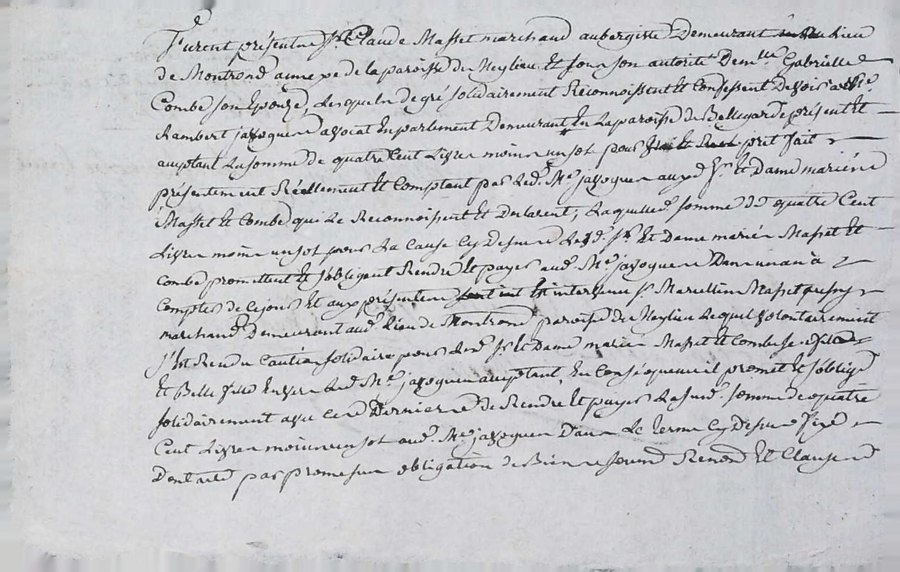 Furent présents Sr Claude Masset marchand aubergiste Demeurant lieu
de Montrond annexe de la paroisse de Meylieu Et sous son autorité Demlle Gabrielle
Combe son Epouze, Lesquels de gré solidairement Reconnoissent et Confessent Devoir a Me
Rambert jayoquen avocat En parlement Demeurant En La paroisse de Bellegarde présent Et
acceptant La somme de quatre Cent Livres moins un sot pour pret fait
présentement Réellement Et Comptant par Led. Me jayoquen auxd Srs Et Dame mariés
Masset Et Combe qui Le Reconnoissent Et Declarent, Laquelle somme de quatre Cent
Livres moins un sot pour La Cause Cy Dessus Lesd. Sr Et Dame mariés Masset Et
Combe promettent Et s'obligent Rendre Et payer aud. Me jayoquen Dans un an à
Compter de Cejour Et aux présentes Est intervenu Sr Marcellin Masset
marchand Demeurant aud. Lieu de Montrond paroisse de Meylieu Lequel volontairement
s'Est Rendu Caution solidaire pour Lesd. Sr Et Dame mariés Masset Et Combe ses fils
Et Belle fille Envers Led. Me jayoquen acceptant, En Conséquence il promet Et s'oblige
solidairement avec ces Derniers de Rendre Et payer La susd. somme de quatre
Cent Livres moins un sot aud. Me jayoquen Dans Le terme Cy Dessus fixé
Dont acte par promesses obligation de Biens Renond Et Clauses